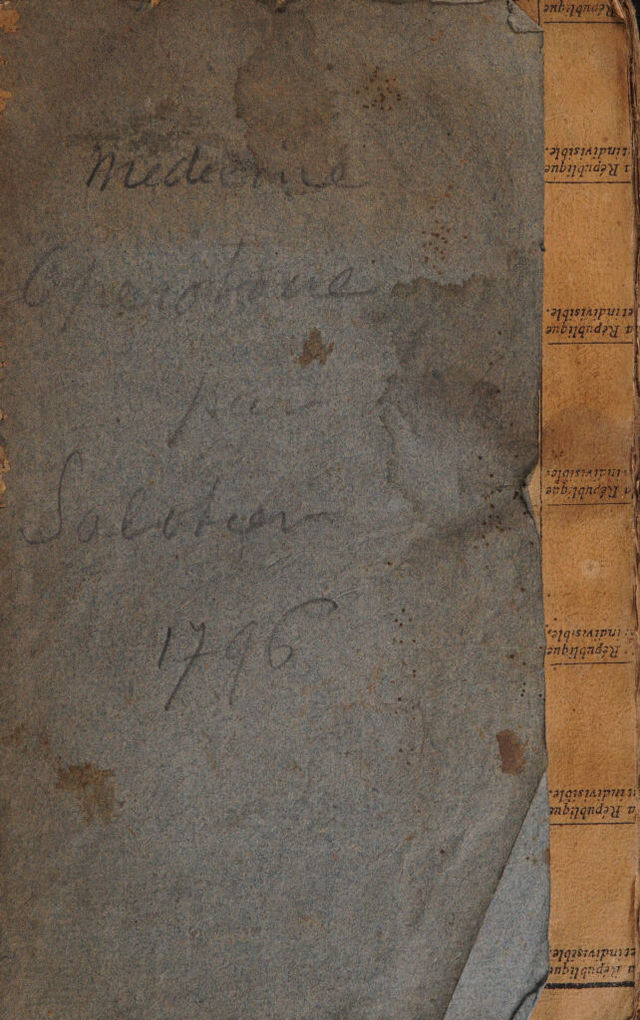 Medecine
Operatoire
par
Sabatier
1796
République
la République
et indivisible.
la République
et indivisible.
la République
et indivisible.
la République
et indivisible.
la République
et indivisible.
la République
et indivisible.